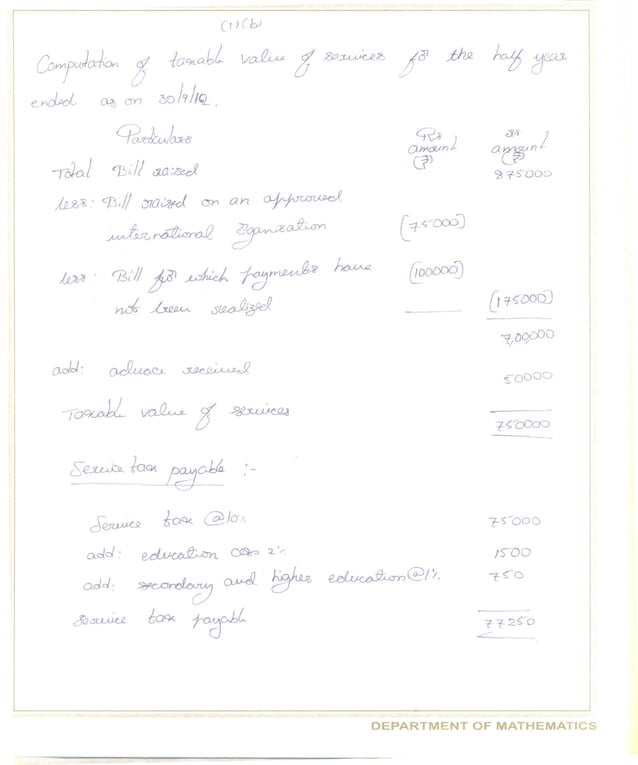 (1)(b)
Computation of taxable value of services for the half year
ended as on 30/9/10.
Particulars Rs amount (₹) Rs amount (₹)
Total Bill raised 875000
less: Bill raised on an approved
international organization (75000)
less: Bill for which payments have (100000)
not been realized (175000)
7,00,000
add: advace received 50000
Taxable value of services 750000
Service tax payable :-
Service tax @10% 75000
add: education cess 2% 1500
add: secondary and higher education @1% 750
Service tax payable 77250
DEPARTMENT OF MATHEMATICS